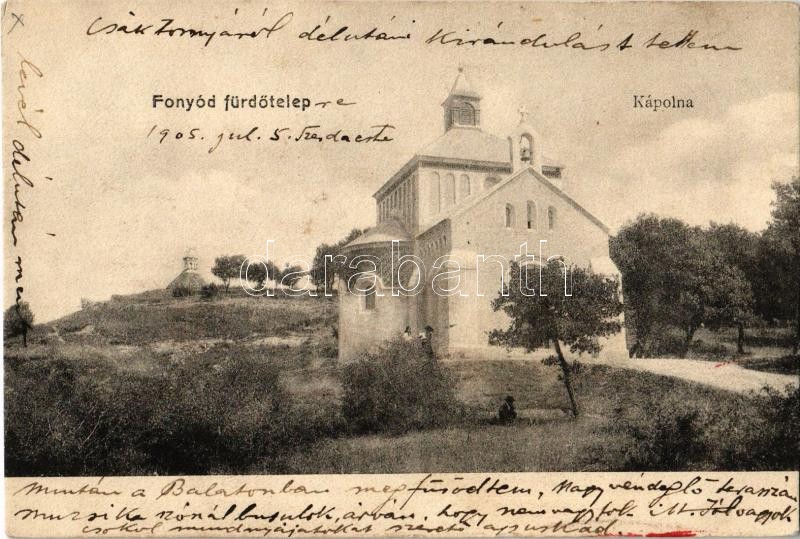 Csáktornyáról délutáni Kirándulást tettem
Fonyód fürdőtelepre
Kápolna
1905. jul. 5. Szerda este
x levél délután ment
darabanth
miután a Balatonban megfürödtem, Nagyvendéglő teraszán
muzsika szónál busulok, árván, hogy nem vagytok itt. Jól vagyok
csókol mindnyájatokat szerető apuskád